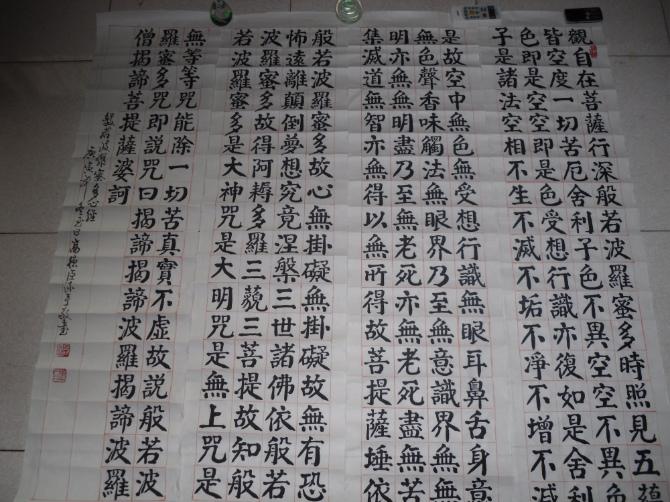 觀自在菩薩行深般若波羅蜜多時照見五蘊
皆空度一切苦厄舍利子色不異空空不異色
色即是空空即是色受想行識亦復如是舍利
子是諸法空相不生不滅不垢不淨不增不減
是故空中無色無受想行識無眼耳鼻舌身意
無色聲香味觸法無眼界乃至無意識界無
明亦無無明盡乃至無老死亦無老死盡無苦
集滅道無智亦無得以無所得故菩提薩埵依
般若波羅蜜多故心無掛礙無掛礙故無有恐
怖遠離顛倒夢想究竟涅槃三世諸佛依般若
波羅蜜多故得阿耨多羅三藐三菩提故知般
若波羅蜜多是大神咒是大明咒是無上咒是
無等等咒能除一切苦真實不虛故說般若波
羅蜜多咒即說咒曰揭諦揭諦波羅揭諦波羅
僧揭諦菩提薩婆訶
般若波羅蜜多心經